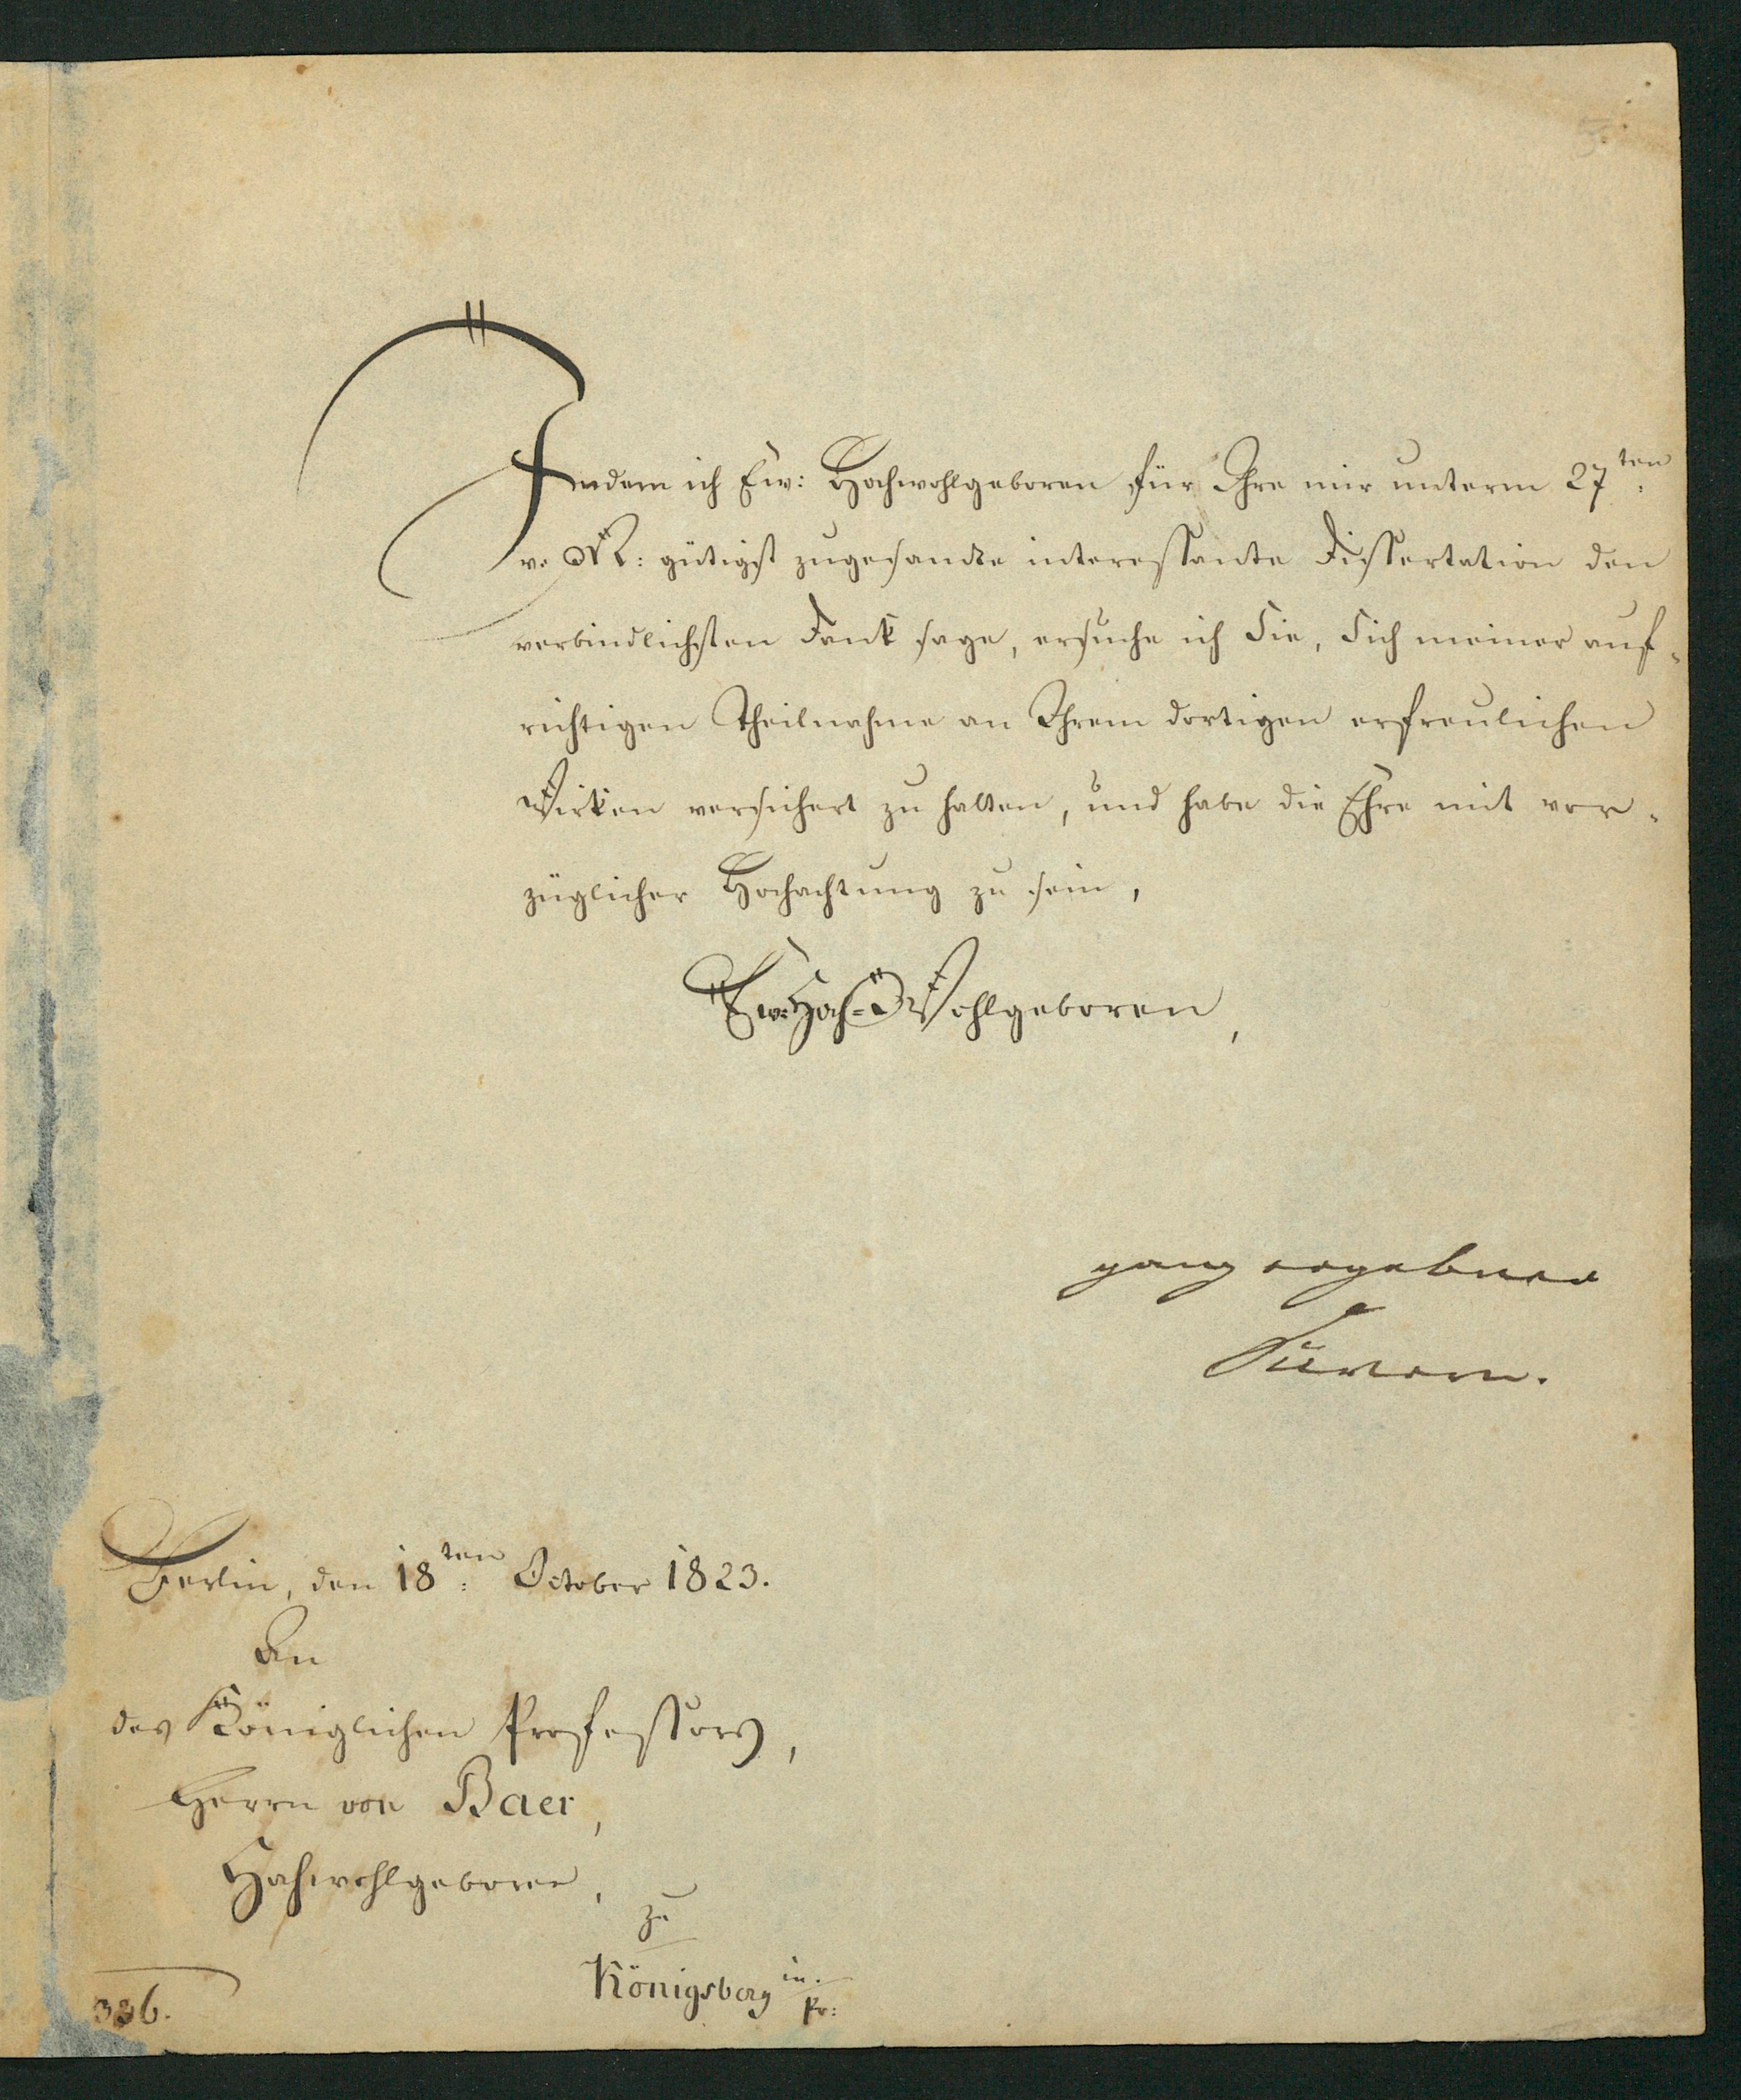 Indem ich Ew: Hochwohlgeboren für Ihre mir unterm 27ten
v. M: gütigst zugesandte interessante Dissertation den
verbindlichsten Dank sage, ersuche ich Sie, Sich meiner auf-
richtigen Theilnahme an Ihrem dortigen erfreulichen
Wirken versichert zu halten, und habe die Ehre mit vor-
züglicher Hochachtung zu sein,
Ew: Hoch- Wohlgeboren,
ganz ergebner
Berlin, den 18ten: October 1823.
An
des Königlichen Professors,
Herrn von Baer,
Hochwohlgeboren,
zu
Königsberg in Pr: